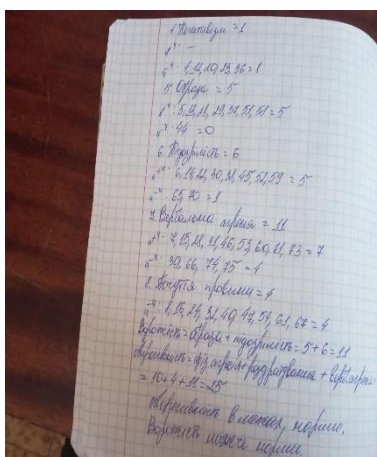 4. Негативізм = 1
"+" –
"-" 4,12,20,23,36 = 1
5. Образа = 5
"+" 5,13,21,29,37,51,58 = 5
"-" 44 = 0
6. Підозрілість = 6
"+" 6,14,22,30,38,45,52,59 = 5
"-" 65,70 = 1
7. Вербальна агресія = 11
"+" 7,15,28,31,46,53,60,71,73 = 7
"-" 39,66,74,75 = 4
8. Почуття провини = 4
"+" 8,16,24,32,40,47,54,61,67 = 4
Ворожість = образа + підозрілість = 5 + 6 = 11
Агресивність = фіз. агресія + роздратування + верб. агресія
= 10 + 4 + 11 = 25
Агресивність в межах норми.
Ворожість норми.